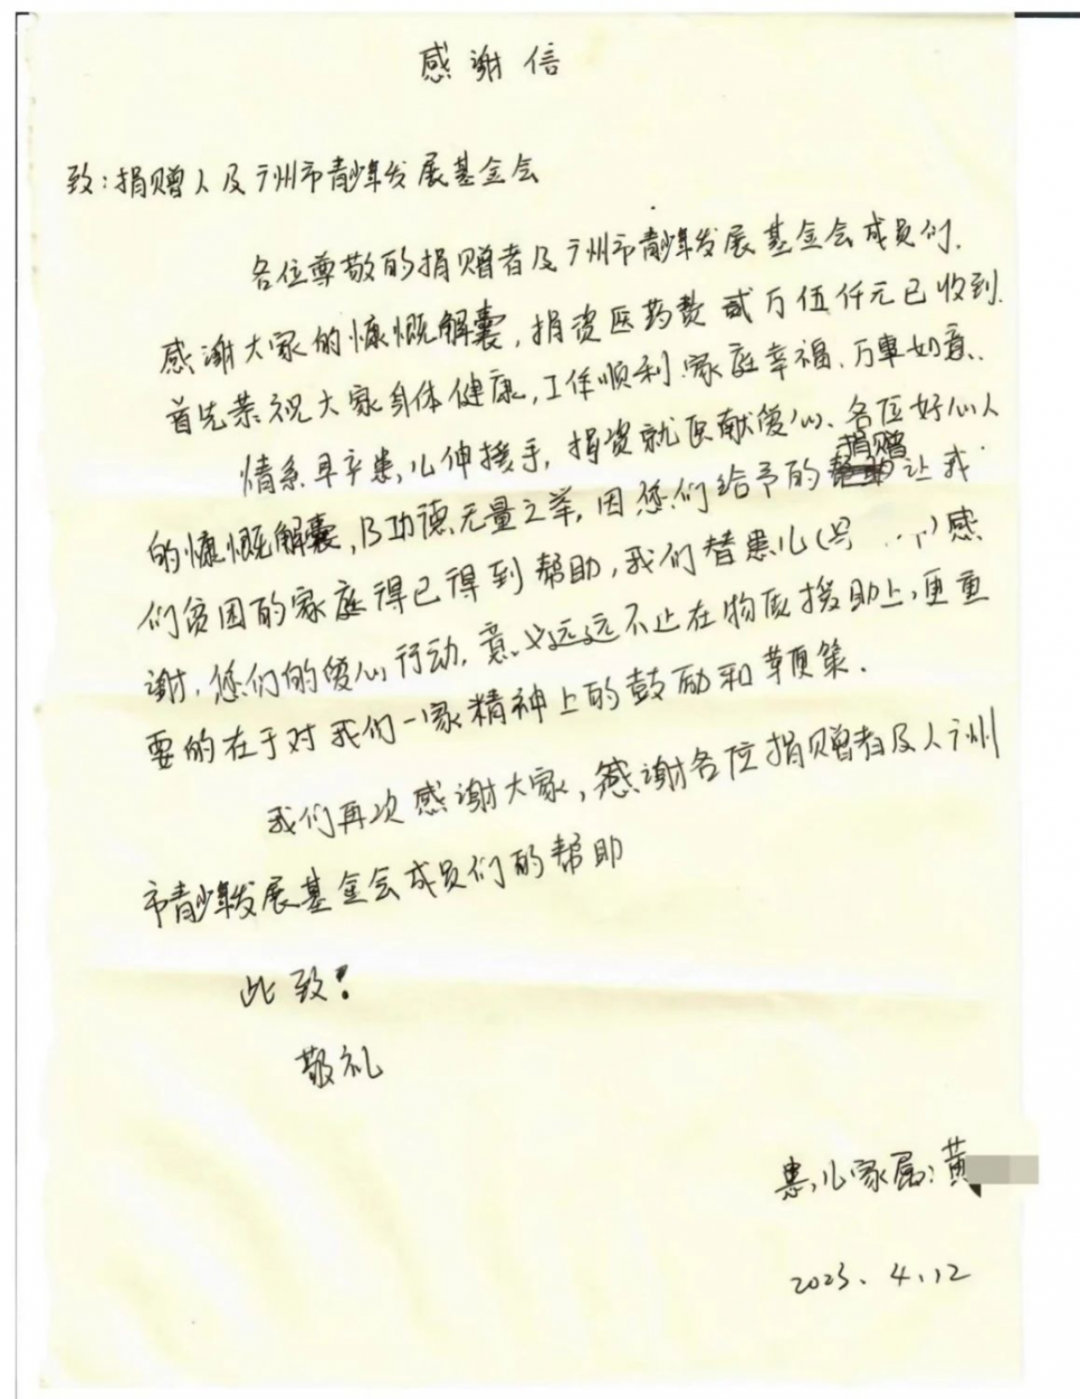 感谢信
致:捐赠人及广州市青少年发展基金会
各位尊敬的捐赠者及广州市青少年发展基金会成员们.
感谢大家的慷慨解囊,捐资医药费贰万伍仟元已收到.
首先恭祝大家身体健康,工作顺利.家庭幸福、万事如意.
情系早产患儿伸援手,捐资就医献爱心、各位好心人
的慷慨解囊,乃功德无量之举,因您们给予的捐赠让我
们贫困的家庭得已得到帮助,我们替患儿(吴 )感
谢,您们的爱心行动,意义远远不止在物质援助上,更重
要的在于对我们一家精神上的鼓励和鞭策.
我们再次感谢大家,感谢各位捐赠者及人广州
市青少年发展基金会成员们的帮助
此致!
敬礼
患儿家属:黄
2023.4.12